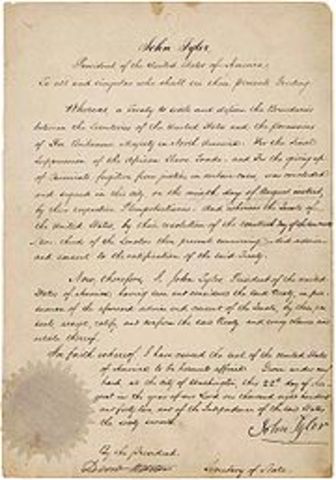 John Tyler
President of the United States of America,
To all and singular who shall see these presents Greeting
Whereas, a Treaty to settle and define the Boundaries
between the territories of the United States and the possessions
of Her Britannic Majesty in North America: For the final
Suppression of the African Slave Trade: and For the giving up
of Criminals fugitive from justice, in certain cases, was concluded
and signed in this city, on the ninth day of August
by their respective Plenipotentiaries: And whereas the Senate of
the United States, by their resolution of the day of
two thirds of the Senators then present concurring did advise
and consent to the ratification of the said Treaty:
Now, therefore, I, John Tyler, President of the United
States of America, having seen and considered the said Treaty, in pur
suance of the aforesaid advice and consent of the Senate, by these pre
sents, accept, ratify, and confirm the said Treaty and every clause and
article thereof.
In faith whereof, I have caused the seal of the United States
of America to be hereunto affixed. Given under my
hand, at the City of Washington, this 22d day of Au
gust in the year of our Lord one thousand eight hundred
and forty two, and of the Independence of the said States,
the sixty seventh.
John Tyler
By the President:
Secretary of State.